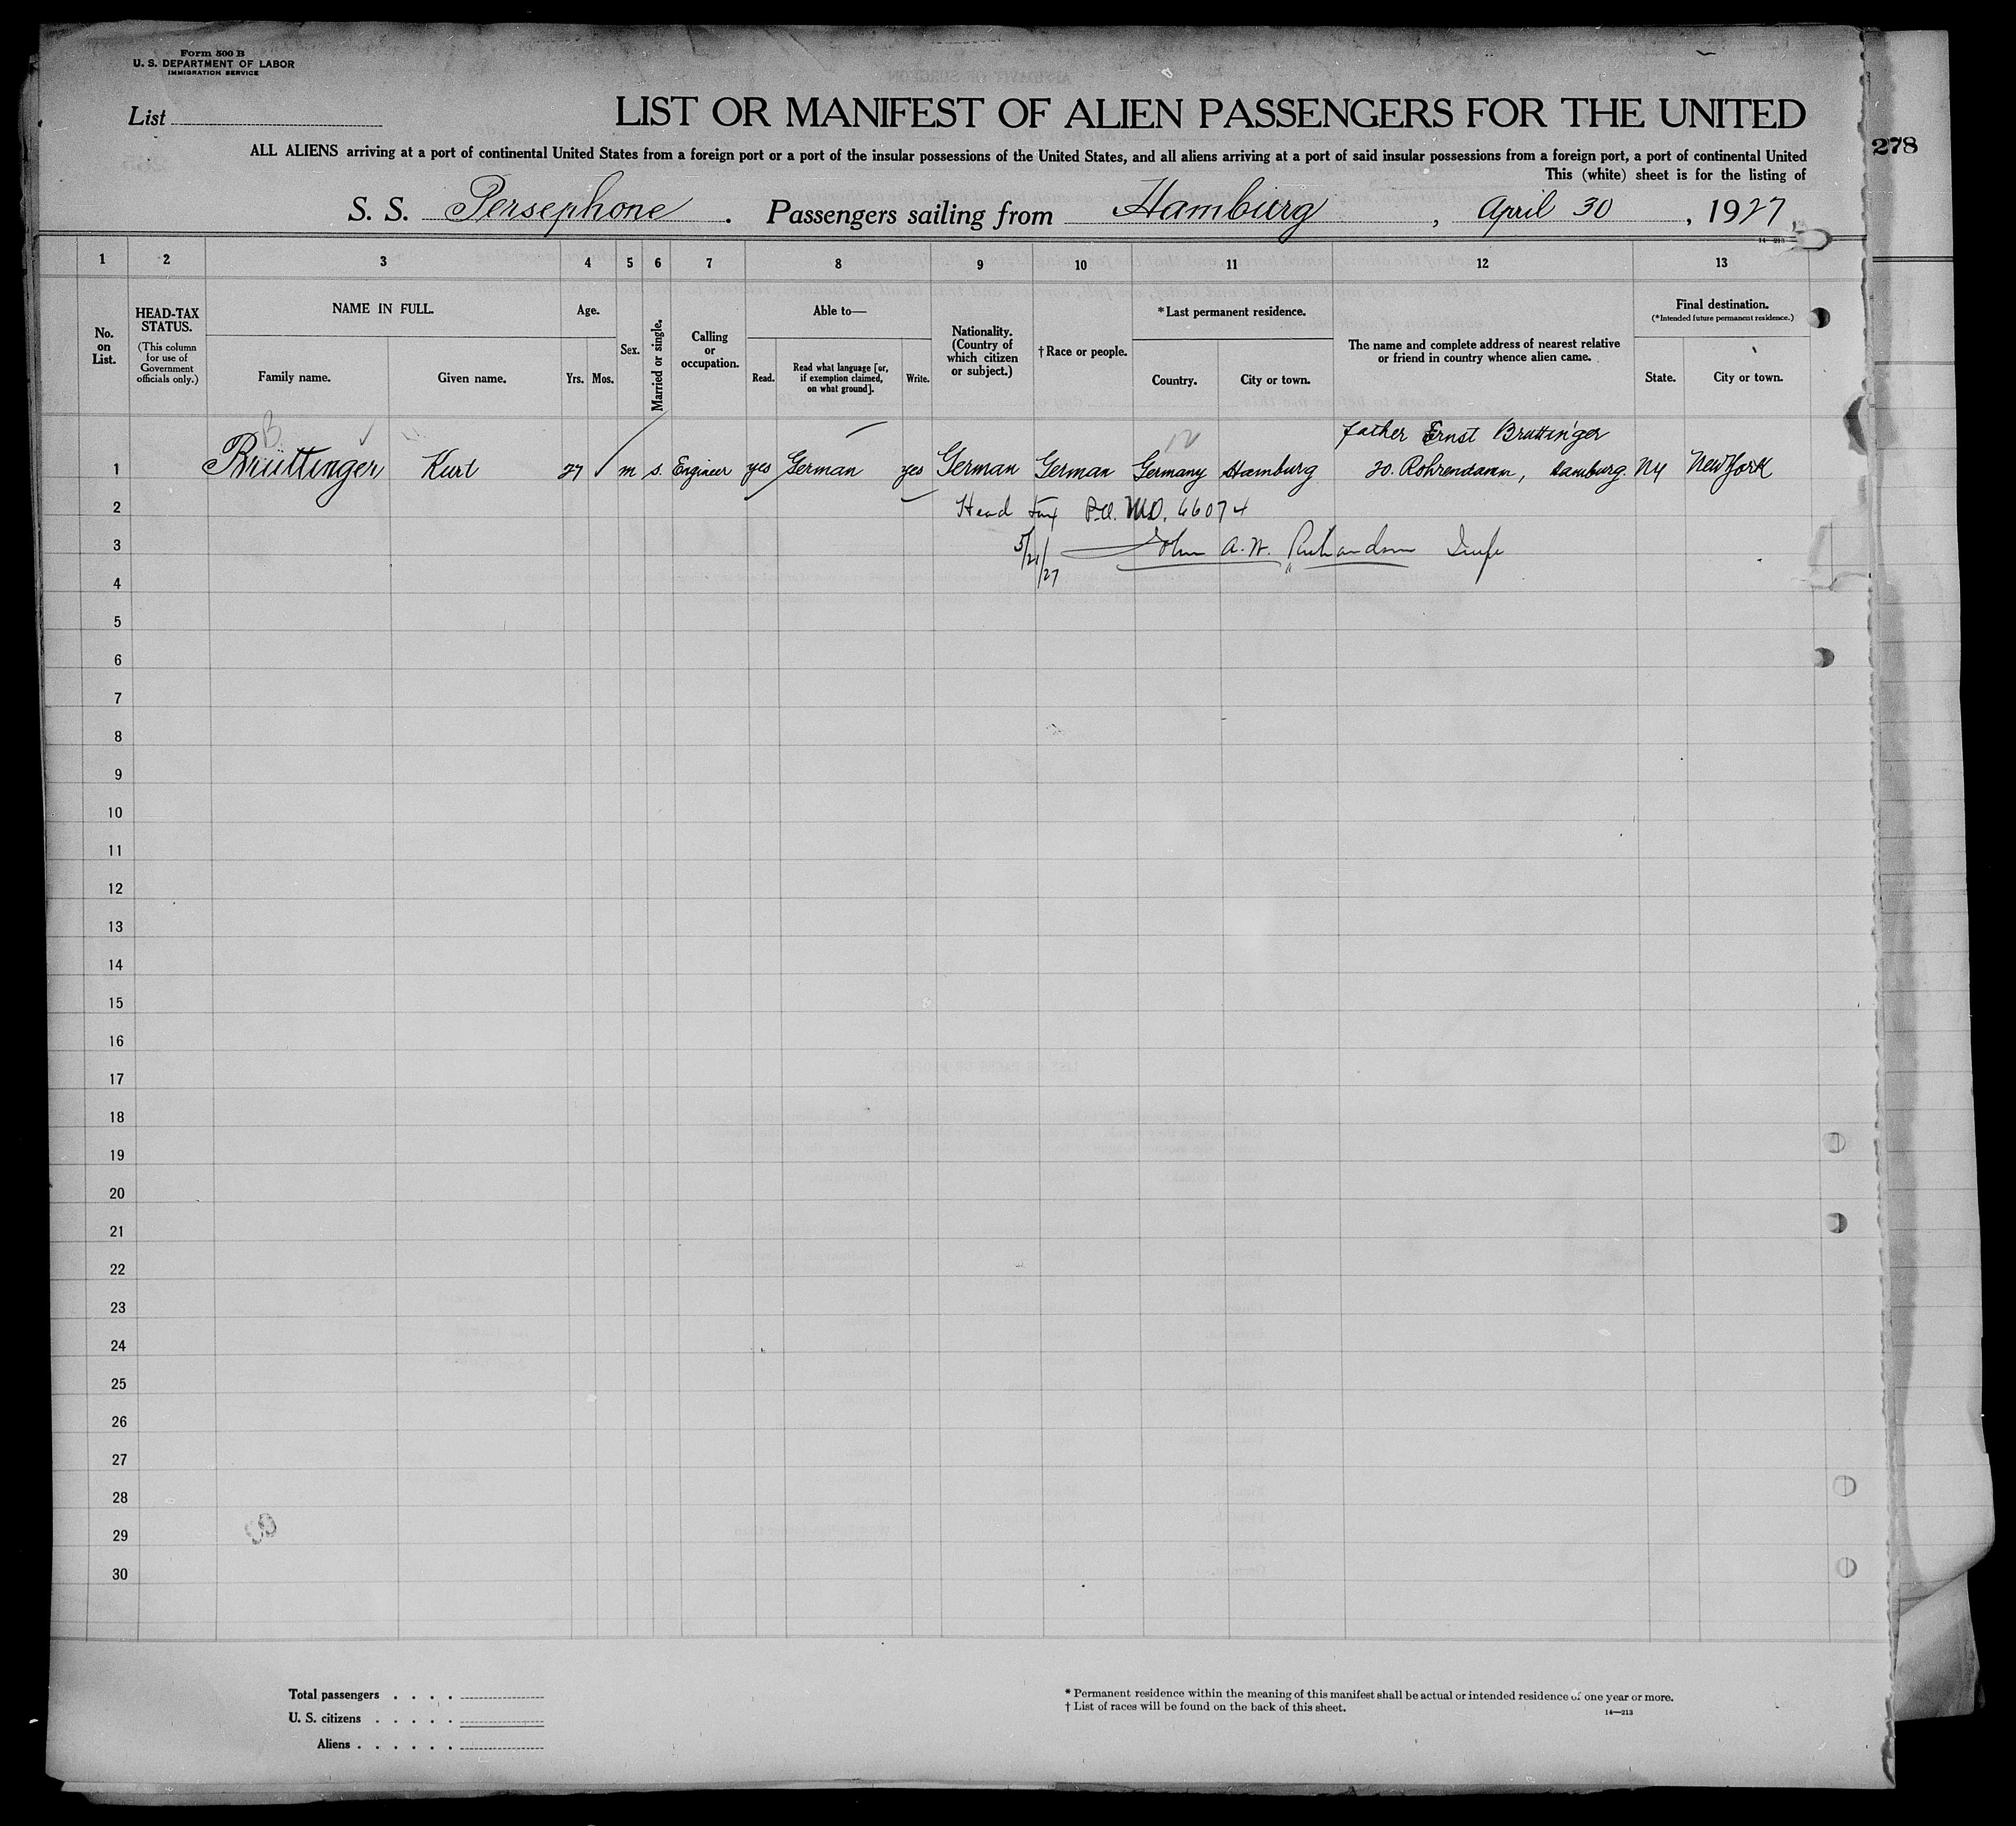 Form 500 B
U. S. DEPARTMENT OF LABOR
IMMIGRATION SERVICE
List
LIST OR MANIFEST OF ALIEN PASSENGERS FOR THE UNITED
278
ALL ALIENS arriving at a port of continental United States from a foreign port or a port of the insular possessions of the United States, and all aliens arriving at a port of said insular possessions from a foreign port, a port of continental United
This (white) sheet is for the listing of
S. S. Persephone . Passengers sailing from Hamburg , April 30 , 1927
14—213
1 2 3 4 5 6 7 8 9 10 11 12 13
No. on List.
HEAD-TAX STATUS.
(This column for use of Government officials only.)
NAME IN FULL.
Family name.
Given name.
Age.
Yrs. Mos.
Sex.
Married or single.
Calling or occupation.
Able to—
Read.
Read what language [or, if exemption claimed, on what ground].
Write.
Nationality. (Country of which citizen or subject.)
† Race or people.
* Last permanent residence.
Country.
City or town.
The name and complete address of nearest relative or friend in country whence alien came.
Final destination.
(*Intended future permanent residence.)
State.
City or town.
B
12
father Ernst Bruttinger
1 Brüttinger Kurt 27 m s. Engineer yes German yes German German Germany Hamburg 20. Rohrendamm, Hamburg. NY New York
2 Head Tax Pd. M.O. 66074
3 5/21/27 John A. W. Richardson Insp
4
5
6
7
8
9
10
11
12
13
14
15
16
17
18
19
20
21
22
23
24
25
26
27
28
29
30
Total passengers . . . .
U. S. citizens . . . . .
Aliens . . . . . .
* Permanent residence within the meaning of this manifest shall be actual or intended residence of one year or more.
† List of races will be found on the back of this sheet.
14—213